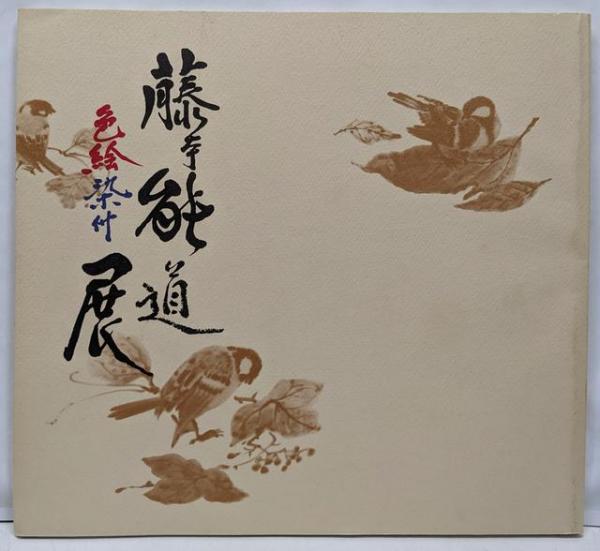 藤本能道
色絵染付
展